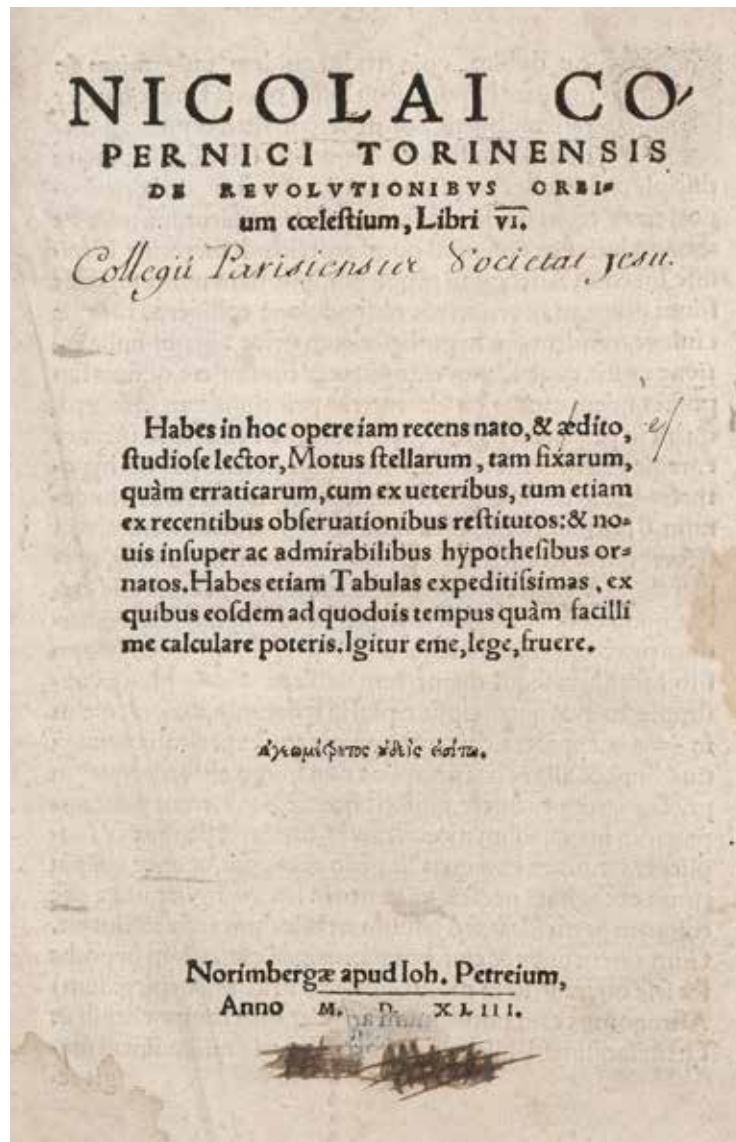 NICOLAI CO-
PERNICI TORINENSIS
DE REVOLVTIONIBVS ORBI-
um cœleſtium, Libri VI.
Collegii Parisiensis Societat Jesu.
Habes in hoc opere iam recens nato, & ædito,
ſtudioſe lector, Motus ſtellarum, tam fixarum,
quàm erraticarum, cum ex ueteribus, tum etiam
ex recentibus obſeruationibus reſtitutos: & no-
uis inſuper ac admirabilibus hypotheſibus or-
natos. Habes etiam Tabulas expeditiſsimas, ex
quibus eoſdem ad quoduis tempus quàm facilli
me calculare poteris. Igitur eme, lege, fruere.
Ἀγεωμέτρητος οὐδεὶς εἰσίτω.
Norimbergæ apud Ioh. Petreium,
Anno M. D. XLIII.